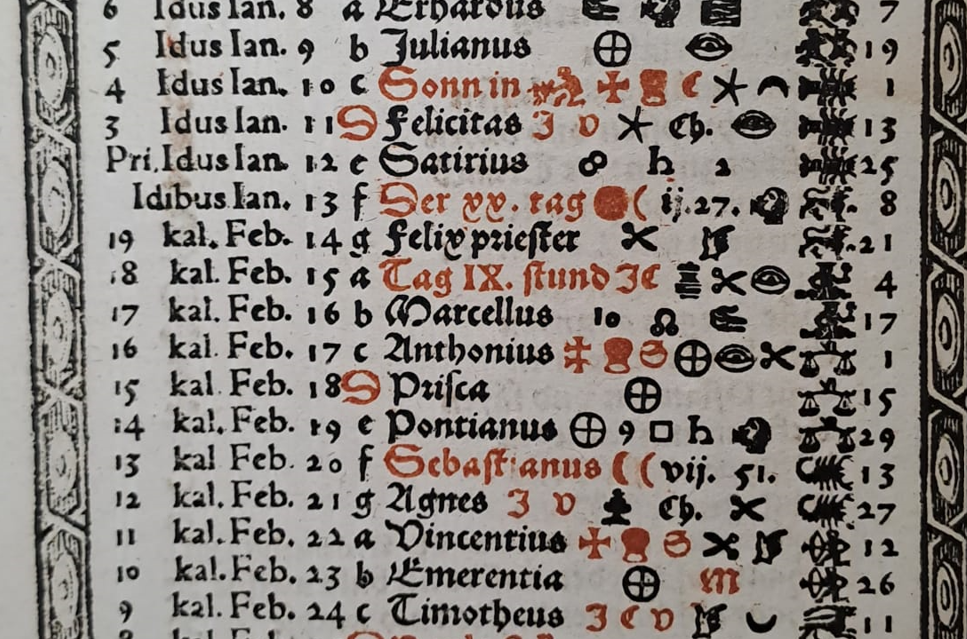 6 Idus Ian. 8 a Erhardus 7
5 Idus Ian. 9 b Julianus 19
4 Idus Ian. 10 c Sonn in 1
3 Idus Ian. 11 S Felicitas J v Ch. 13
Pri. Idus Ian. 12 e Satirius ☍ ♄ 2 25
Idibus Ian. 13 f Der xx. tag ( ij. 27. 8
19 kal. Feb. 14 g Felix priester 21
18 kal. Feb. 15 a Tag IX. stund J C 4
17 kal. Feb. 16 b Marcellus 10 ☊ 17
16 kal. Feb. 17 c Anthonius 1
15 kal. Feb. 18 S Prisca 15
14 kal. Feb. 19 e Pontianus 9 □ ♄ 29
13 kal. Feb. 20 f Sebastianus ( ( vij. 51. 13
12 kal. Feb. 21 g Agnes J v Ch. 27
11 kal. Feb. 22 a Vincentius 12
10 kal. Feb. 23 b Emerentia m 26
9 kal. Feb. 24 c Timotheus J C v 11